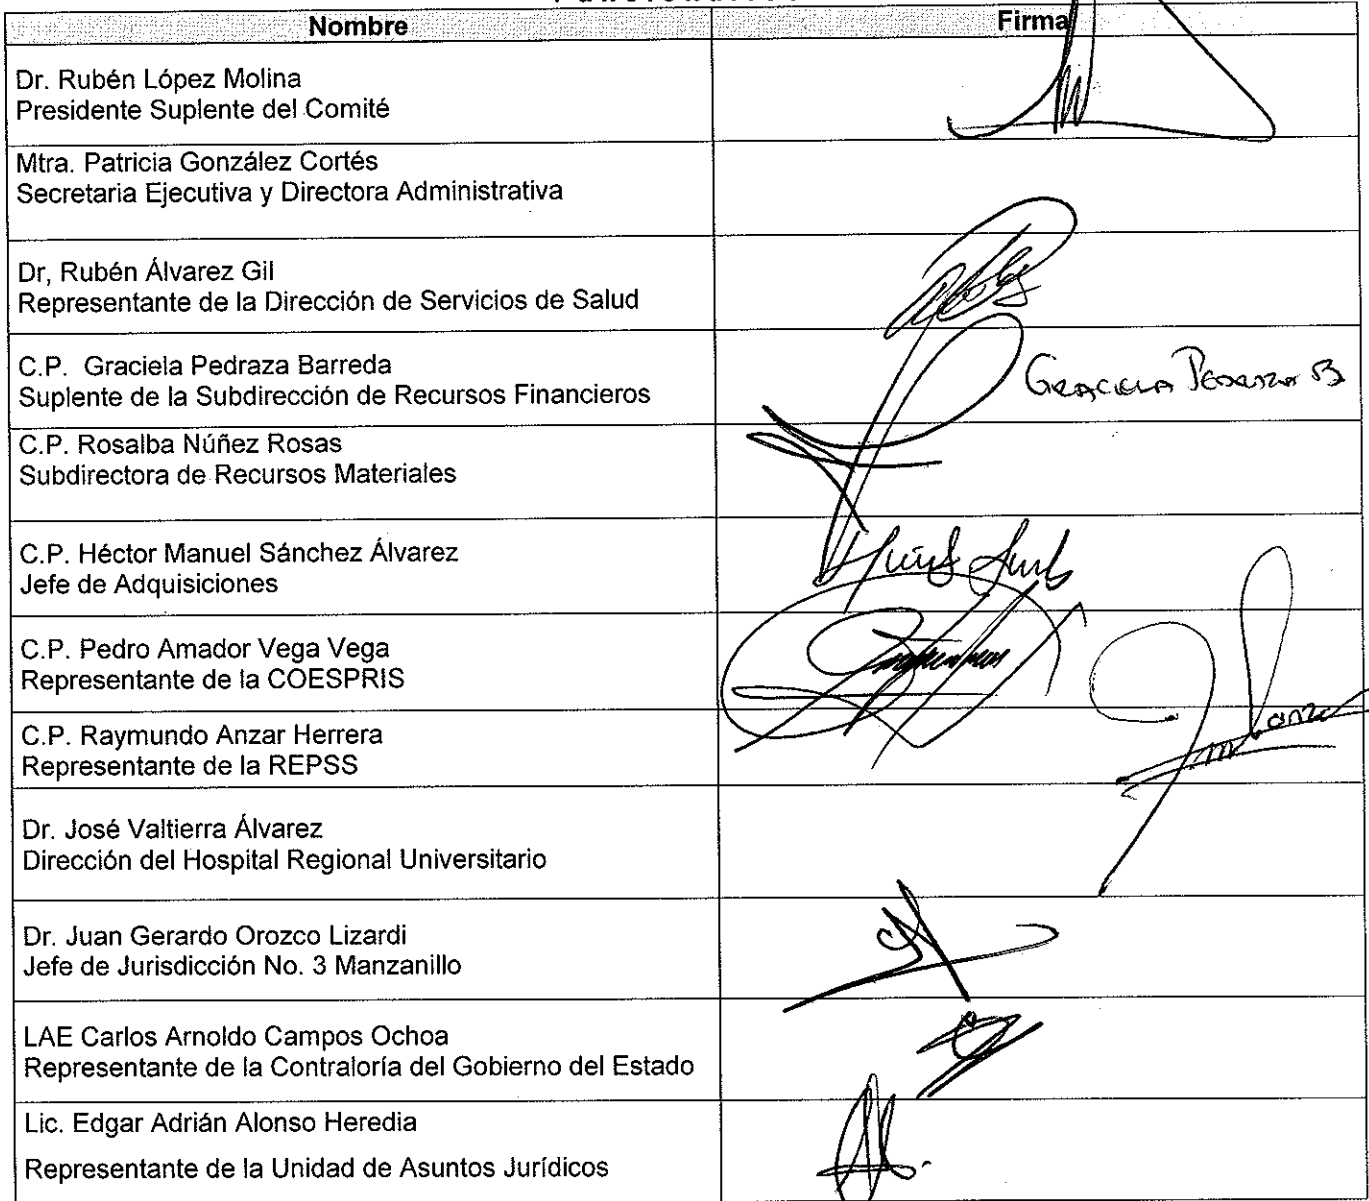 Nombre Firma
Dr. Rubén López Molina
Presidente Suplente del Comité
Mtra. Patricia González Cortés
Secretaria Ejecutiva y Directora Administrativa
Dr, Rubén Álvarez Gil
Representante de la Dirección de Servicios de Salud
C.P. Graciela Pedraza Barreda
Suplente de la Subdirección de Recursos Financieros
GRACIELA PEDRAZA B
C.P. Rosalba Núñez Rosas
Subdirectora de Recursos Materiales
C.P. Héctor Manuel Sánchez Álvarez
Jefe de Adquisiciones
C.P. Pedro Amador Vega Vega
Representante de la COESPRIS
C.P. Raymundo Anzar Herrera
Representante de la REPSS
Dr. José Valtierra Álvarez
Dirección del Hospital Regional Universitario
Dr. Juan Gerardo Orozco Lizardi
Jefe de Jurisdicción No. 3 Manzanillo
LAE Carlos Arnoldo Campos Ochoa
Representante de la Contraloría del Gobierno del Estado
Lic. Edgar Adrián Alonso Heredia
Representante de la Unidad de Asuntos Jurídicos